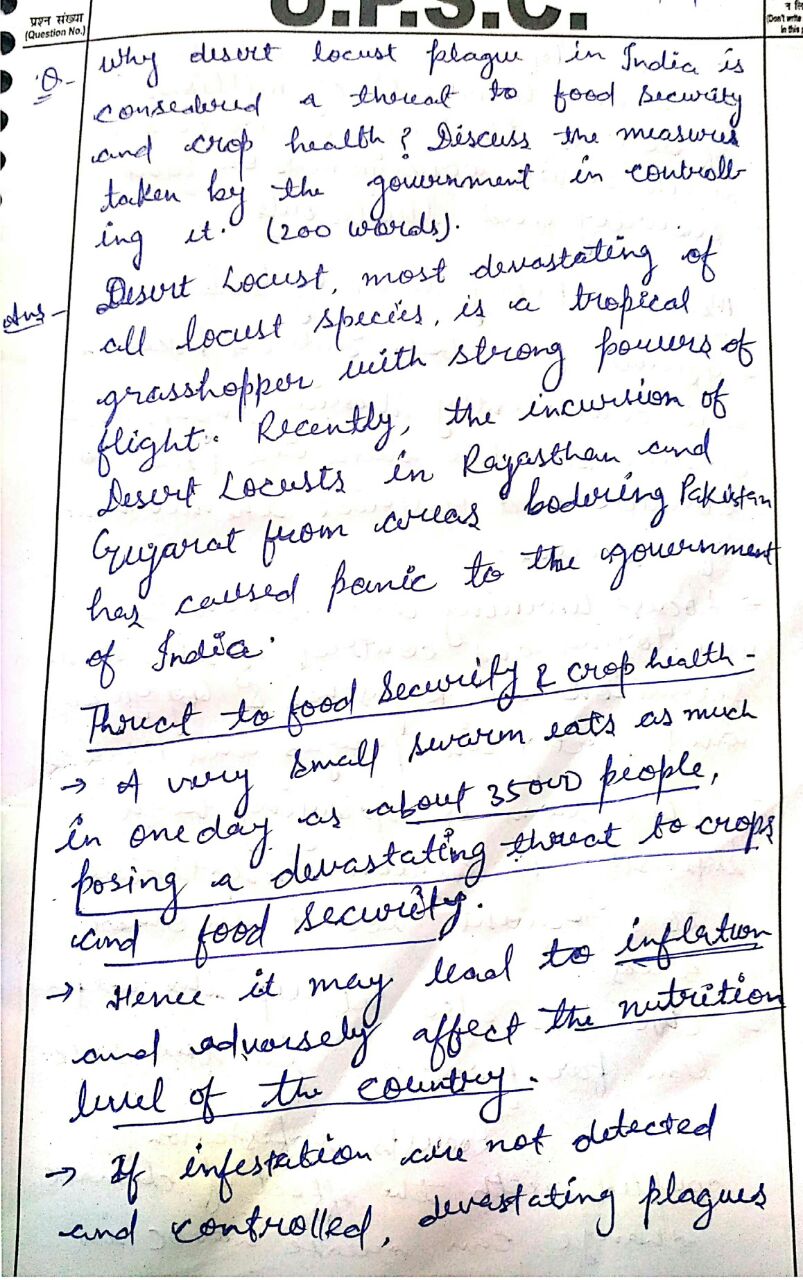 U.P.S.C.
प्रश्न संख्या
(Question No.)
(Don't write
in this
Q- Why desert locust plague in India is
considered a threat to food security
and crop health? Discuss the measures
taken by the government in controll-
ing it. (200 words).
Ans- Desert Locust, most devastating of
all locust species, is a tropical
grasshopper with strong powers of
flight. Recently, the incursion of
Desert Locusts in Rajasthan and
Gujarat from areas bodering Pakistan
has caused panic to the government
of India.
Threat to food Security & crop health -
→ A very small swarm eats as much
in one day as about 35000 people,
posing a devastating threat to crops
and food security.
→ Hence it may lead to inflation
and adversely affect the nutrition
level of the country.
→ If infestation are not detected
and controlled, devastating plagues